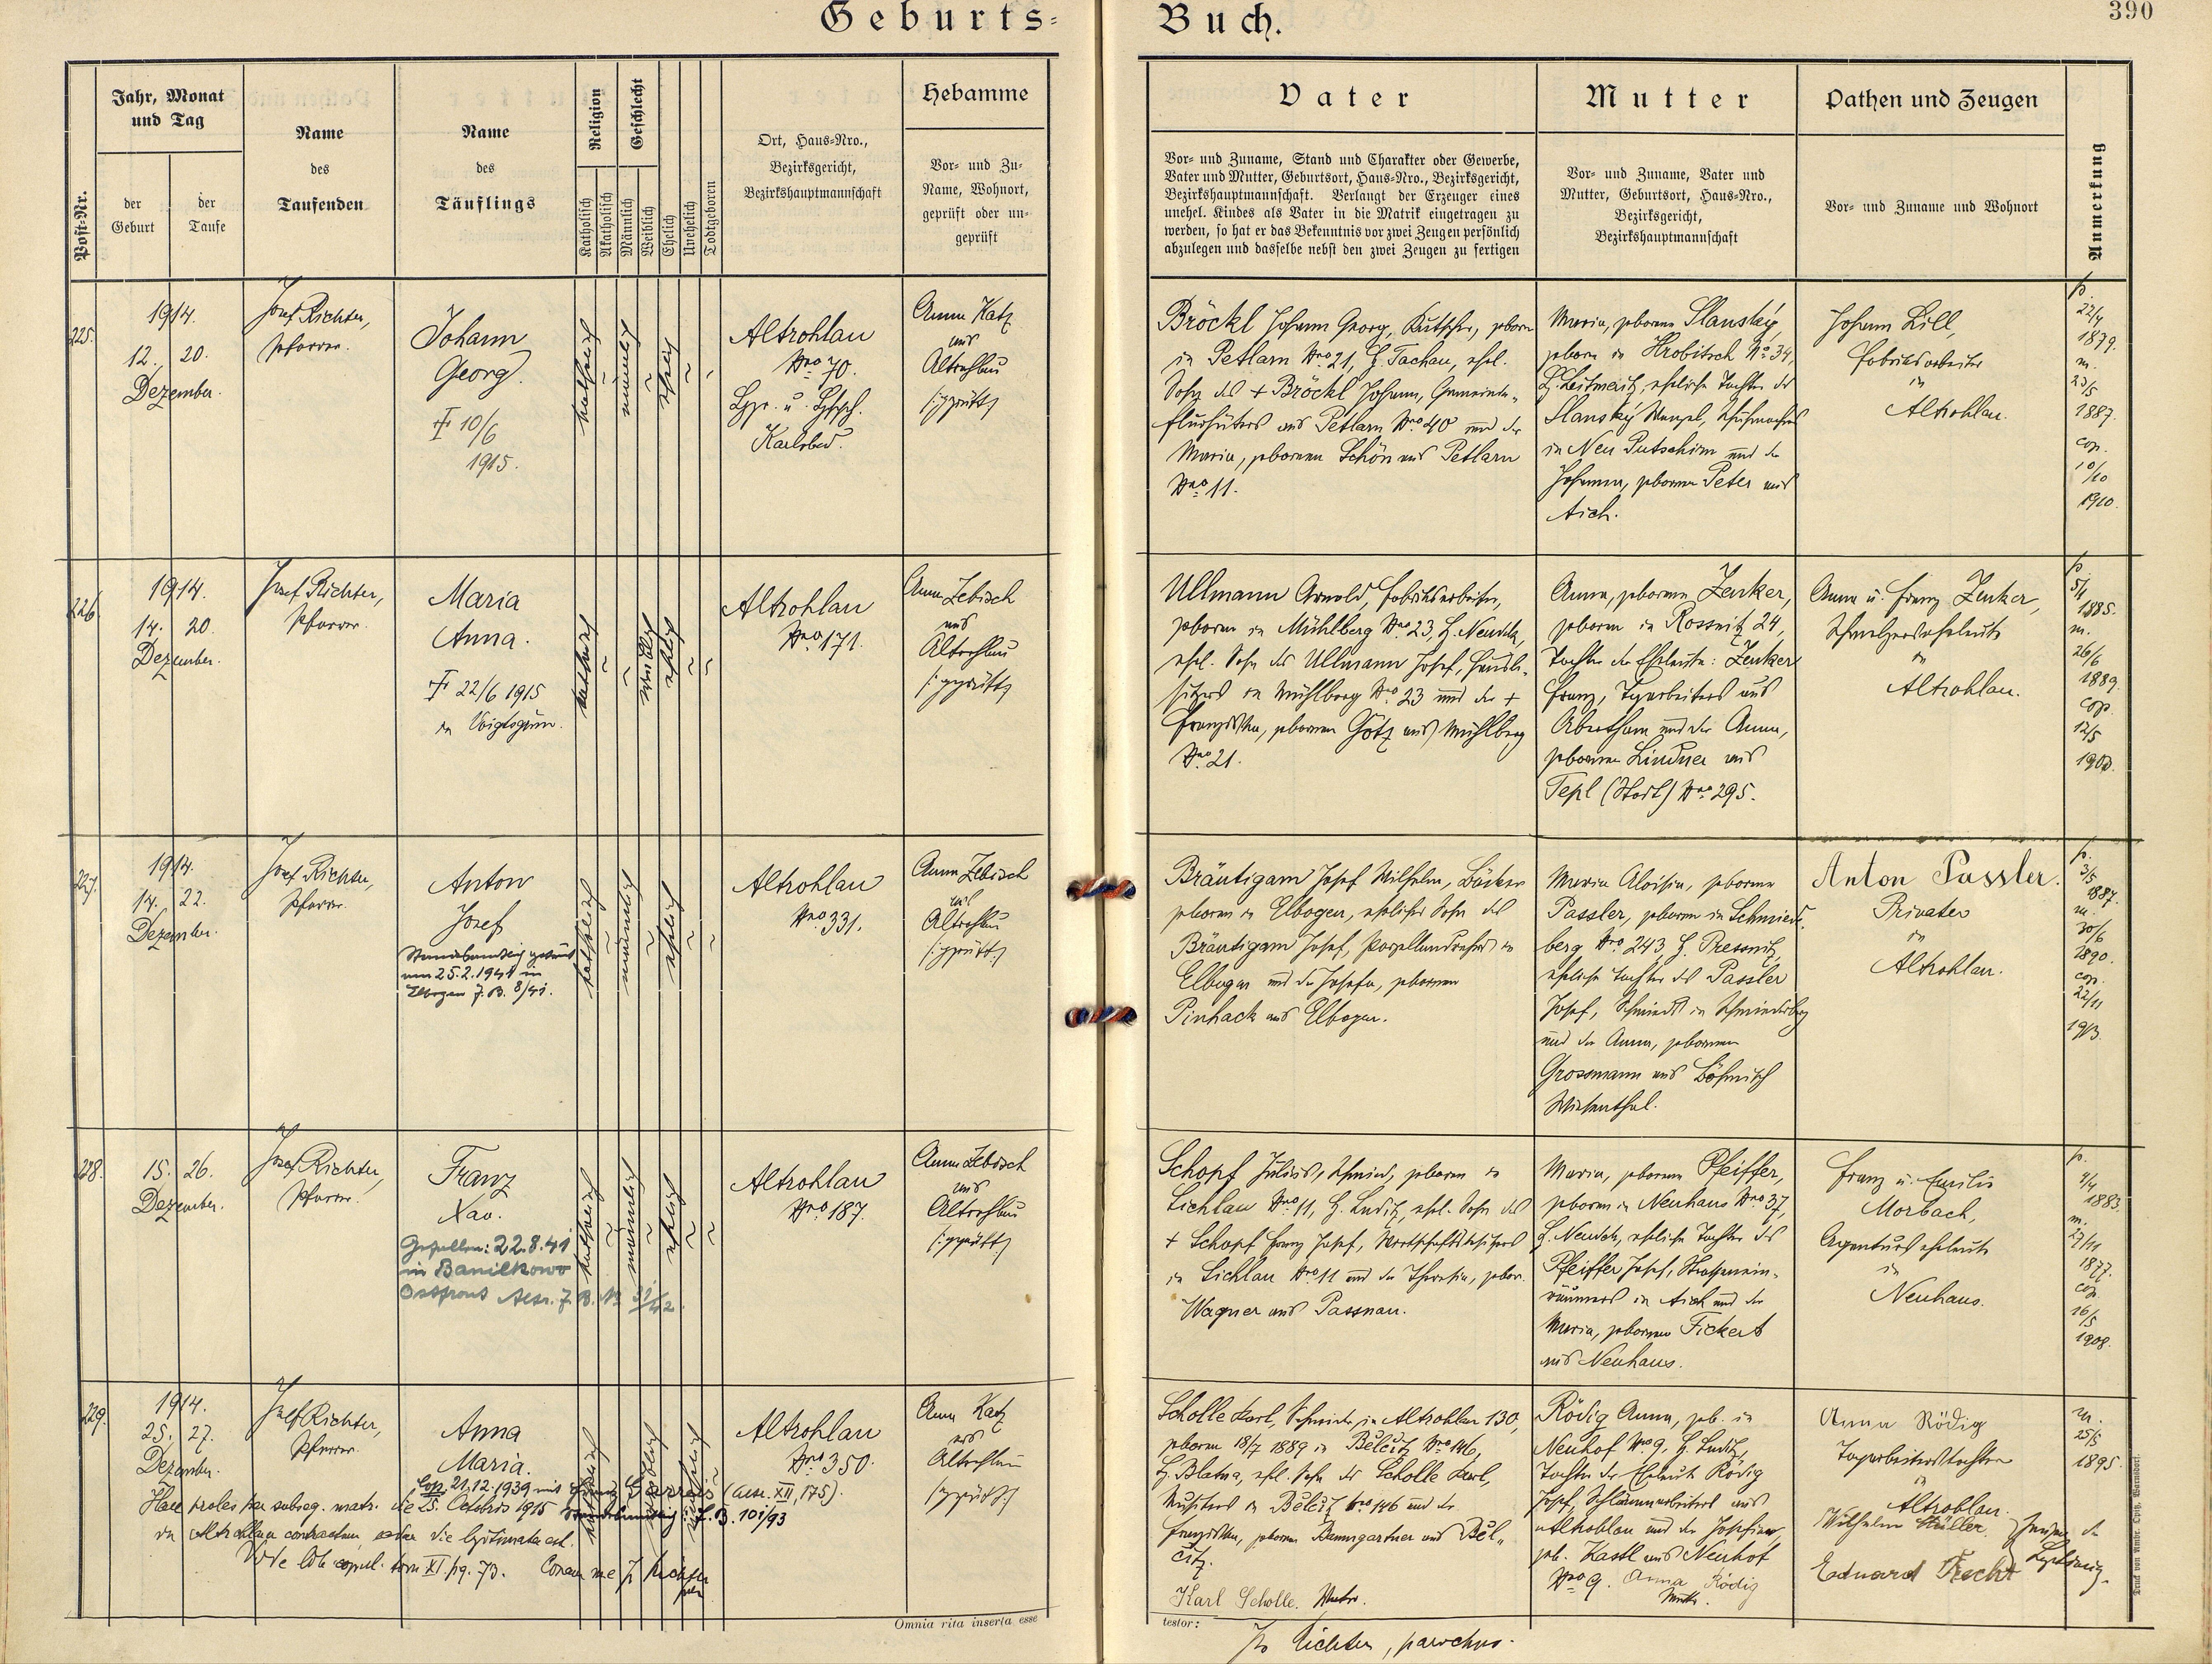 Geburts-
Buch.
390
Post-Nr.
Jahr, Monat
und Tag
der
Geburt
der
Taufe
Name
des
Taufenden
Name
des
Täuflings
Religion
Katholisch
Akatholisch
Geschlecht
Männlich
Weiblich
Ehelich
Unehelich
Todtgeboren
Ort, Haus-Nro.,
Bezirksgericht,
Bezirkshauptmannschaft
Hebamme
Vor- und Zu-
Name, Wohnort,
geprüft oder un-
geprüft
Vater
Vor- und Zuname, Stand und Charakter oder Gewerbe,
Vater und Mutter, Geburtsort, Haus-Nro., Bezirksgericht,
Bezirkshauptmannschaft. Verlangt der Erzeuger eines
unehel. Kindes als Vater in die Matrik eingetragen zu
werden, so hat er das Bekenntnis vor zwei Zeugen persönlich
abzulegen und dasselbe nebst den zwei Zeugen zu fertigen
Mutter
Vor- und Zuname, Vater und
Mutter, Geburtsort, Haus-Nro.,
Bezirksgericht,
Bezirkshauptmannschaft
Pathen und Zeugen
Vor- und Zuname und Wohnort
Anmerkung
225.
1914.
12. 20.
Dezember.
Josef Richter,
Pfarrer.
Johann
Georg.
† 10/6
1915.
katholisch
männlich
ehelich
Altrohlau
Nro 70.
Karlsbad.
Anna Katz
aus
Altrohlau
(:geprüft:)
Bröckl Johann Georg, Kutscher, geboren
in Petlarn Nro 21, B. Tachau, ehel.
Sohn des + Bröckl Johann, Gemeinde-
flurhüters aus Petlarn Nro 40 und der
Maria, geborenen Schön aus Petlarn
Nro 11.
Maria, geborene Slanský,
geboren in Hrobitsch No 34,
B. Leitmeritz, eheliche Tochter des
Slanský Wenzel, Schuhmachers
in Neu Putschirn und der
Johanna, geborenen Peter aus
Aich.
Johann Lill,
Fabriksarbeiter
in
Altrohlau.
p.
22/4
1879.
m.
23/5
1887.
cop.
10/10
1910.
226.
1914.
14. 20.
Dezember.
Josef Richter,
Pfarrer.
Maria
Anna.
† 22/6 1915
in Voigtsgrün.
katholisch
weiblich
ehelich
Altrohlau
Nro 171.
Anna Zebisch
aus
Altrohlau
(:geprüft:)
Ullmann Arnold, Fabriksarbeiter,
geboren in Mühlberg Nro 23, B. Neudek,
ehel. Sohn des Ullmann Josef, Hausbe-
sitzers in Mühlberg Nro 23 und der +
Franziska, geborenen Götz aus Mühlberg
No 21.
Anna, geborene Zenker,
geboren in Rossnitz 24,
Tochter der Eheleute: Zenker
Franz, Tagarbeiters aus
Abertham und der Anna,
geborenen Lindner aus
Tepl (Stadt) Nro 295.
Anna u. Franz Zenker,
in
Altrohlau.
p.
5/4
1885.
m.
26/6
1889.
cop.
12/5
227.
1914.
14. 22.
Dezember.
Josef Richter,
Pfarrer.
Anton
Josef
Standesamtlich getraut
am 25.2.1941 in
Elbogen F.B. 8/41.
katholisch
männlich
ehelich
Altrohlau
Nro 331.
Anna Zebisch
aus
Altrohlau
(:geprüft:)
Bräutigam Josef Wilhelm, Bäcker
geboren in Elbogen, ehelicher Sohn des
Bräutigam Josef, Porzellandrehers in
Elbogen und der Josefa, geborenen
Pinhack aus Elbogen.
Maria Aloisia, geborene
Passler, geboren in Schmiede-
berg Nro 243, B. Pressnitz,
eheliche Tochter des Passler
Josef, Schmieds in Schmiedeberg
und der Anna, geborenen
Grossmann aus Böhmisch
Wiesenthal.
Anton Passler.
Privater
in
Altrohlau.
p.
3/5
1887.
m.
30/6
1890.
cop.
22/11
1913.
228.
15. 26.
Dezember.
Josef Richter,
Pfarrer.
Franz
Xav.
Gefallen: 22.8.41
in Banilkowo
Ostfront
katholisch
männlich
ehelich
Altrohlau
Nro 187.
Anna Zebisch
aus
Altrohlau
(:geprüft:)
Schopf Julius, Schmied, geboren in
Lichlau Nro 11, B. Luditz, ehel. Sohn des
+ Schopf Franz Josef, Wirtschaftsbesitzers
in Lichlau Nro 11 und der Theresia, gebor.
Wagner aus Passnau.
Maria, geborene Pfeiffer,
geboren in Neuhaus Nro 37,
B. Neudek, eheliche Tochter des
Pfeiffer Josef, Strassenein-
räumers in Aich und der
Maria, geborenen Fickert
aus Neuhaus.
Franz u. Emilie
Morbach,
Agenturseheleute
in
Neuhaus.
p.
4/4
1883.
m.
27/11
1877.
cop.
16/5
1908.
229.
1914.
25. 27.
Dezember.
Josef Richter,
Pfarrer.
Anna
Maria.
Cop. 21.12.1939 mit
Haec proles per subseq. matr. die 25. Octobris 1915
in Altrohlau contractum, eadem die legitimata est.
Vide lib. copul. tom XI. pg. 73. Coram me J. Richter
Altrohlau
Nro 350.
Anna Katz
aus
Altrohlau
(:geprüft:)
Scholle Karl, Schmied in Altrohlau 130,
geboren 18/7 1889 in Bělčitz Nro 146,
B. Blatna, ehel. Sohn des Scholle Karl,
Musikers in Bělčitz Nro 146 und der
Franziska, geborenen Baumgartner aus Běl-
čitz.
Karl Scholle. Vater.
Rödig Anna, geb. in
Neuhof Nro 9, B. Luditz,
Tochter der Eheleute Rödig
Josef, Schlämmarbeiters aus
Altrohlau und der Josefine,
geb. Kastl aus Neuhof
Nro 9. Anna Rödig
Mutter.
Anna Rödig
Tagarbeiterstochter
in
Altrohlau.
Wilhelm Müller,
Eduard Frecht
Zeugen der
m.
25/5
1895.
Omnia rita inserta esse
testor:
Jos Richter, parochus.